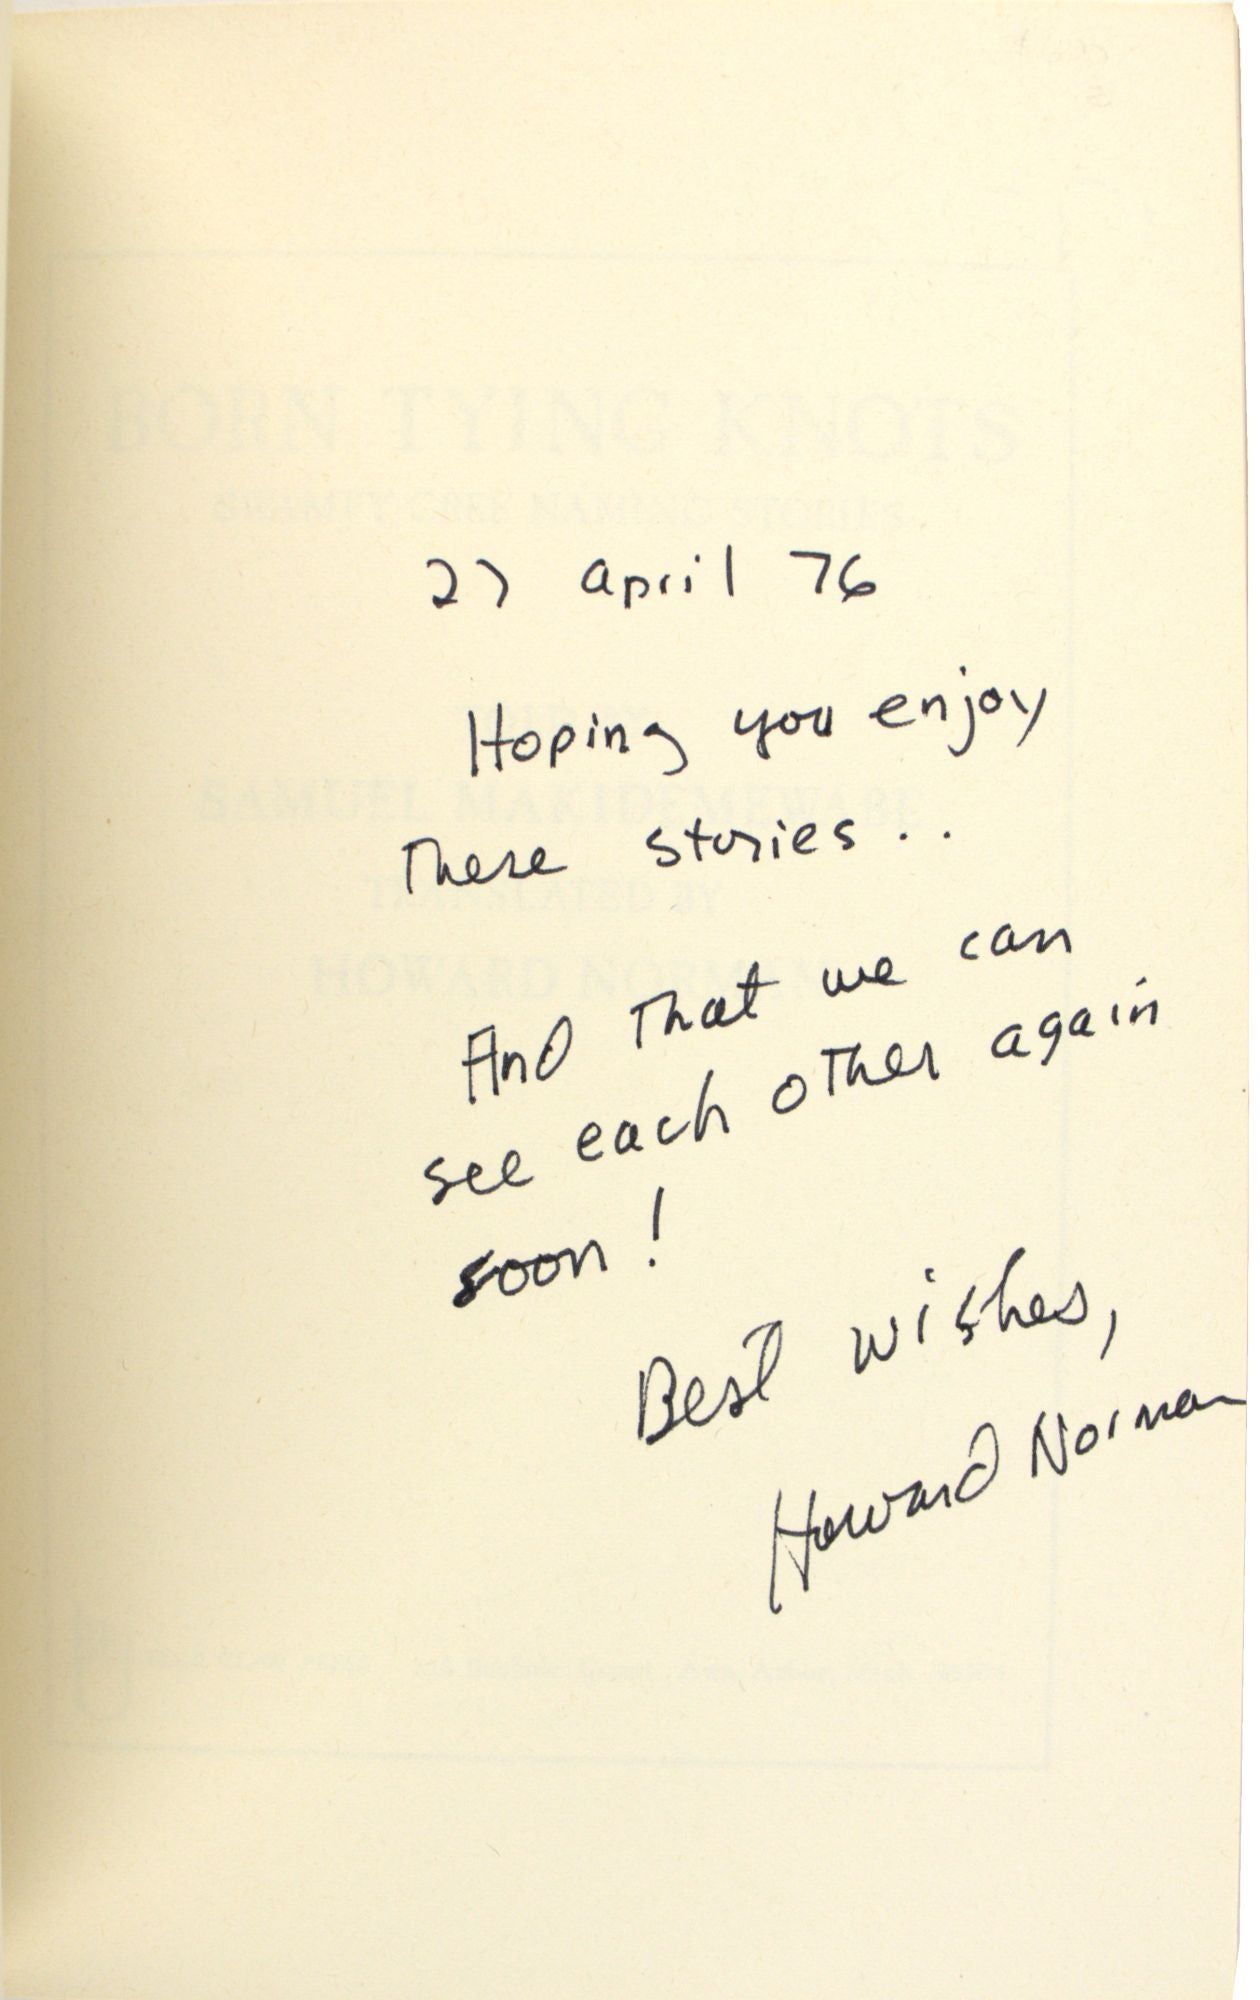 BORN TYING KNOTS
SWAMPY CREE NAMING STORIES
27 April 76
Hoping you enjoy
These stories..
SAMUEL MAKIDEMEWABE
TRANSLATED BY
HOWARD NORMAN
And That we can
see each other again
soon!
Best wishes,
Howard Norman